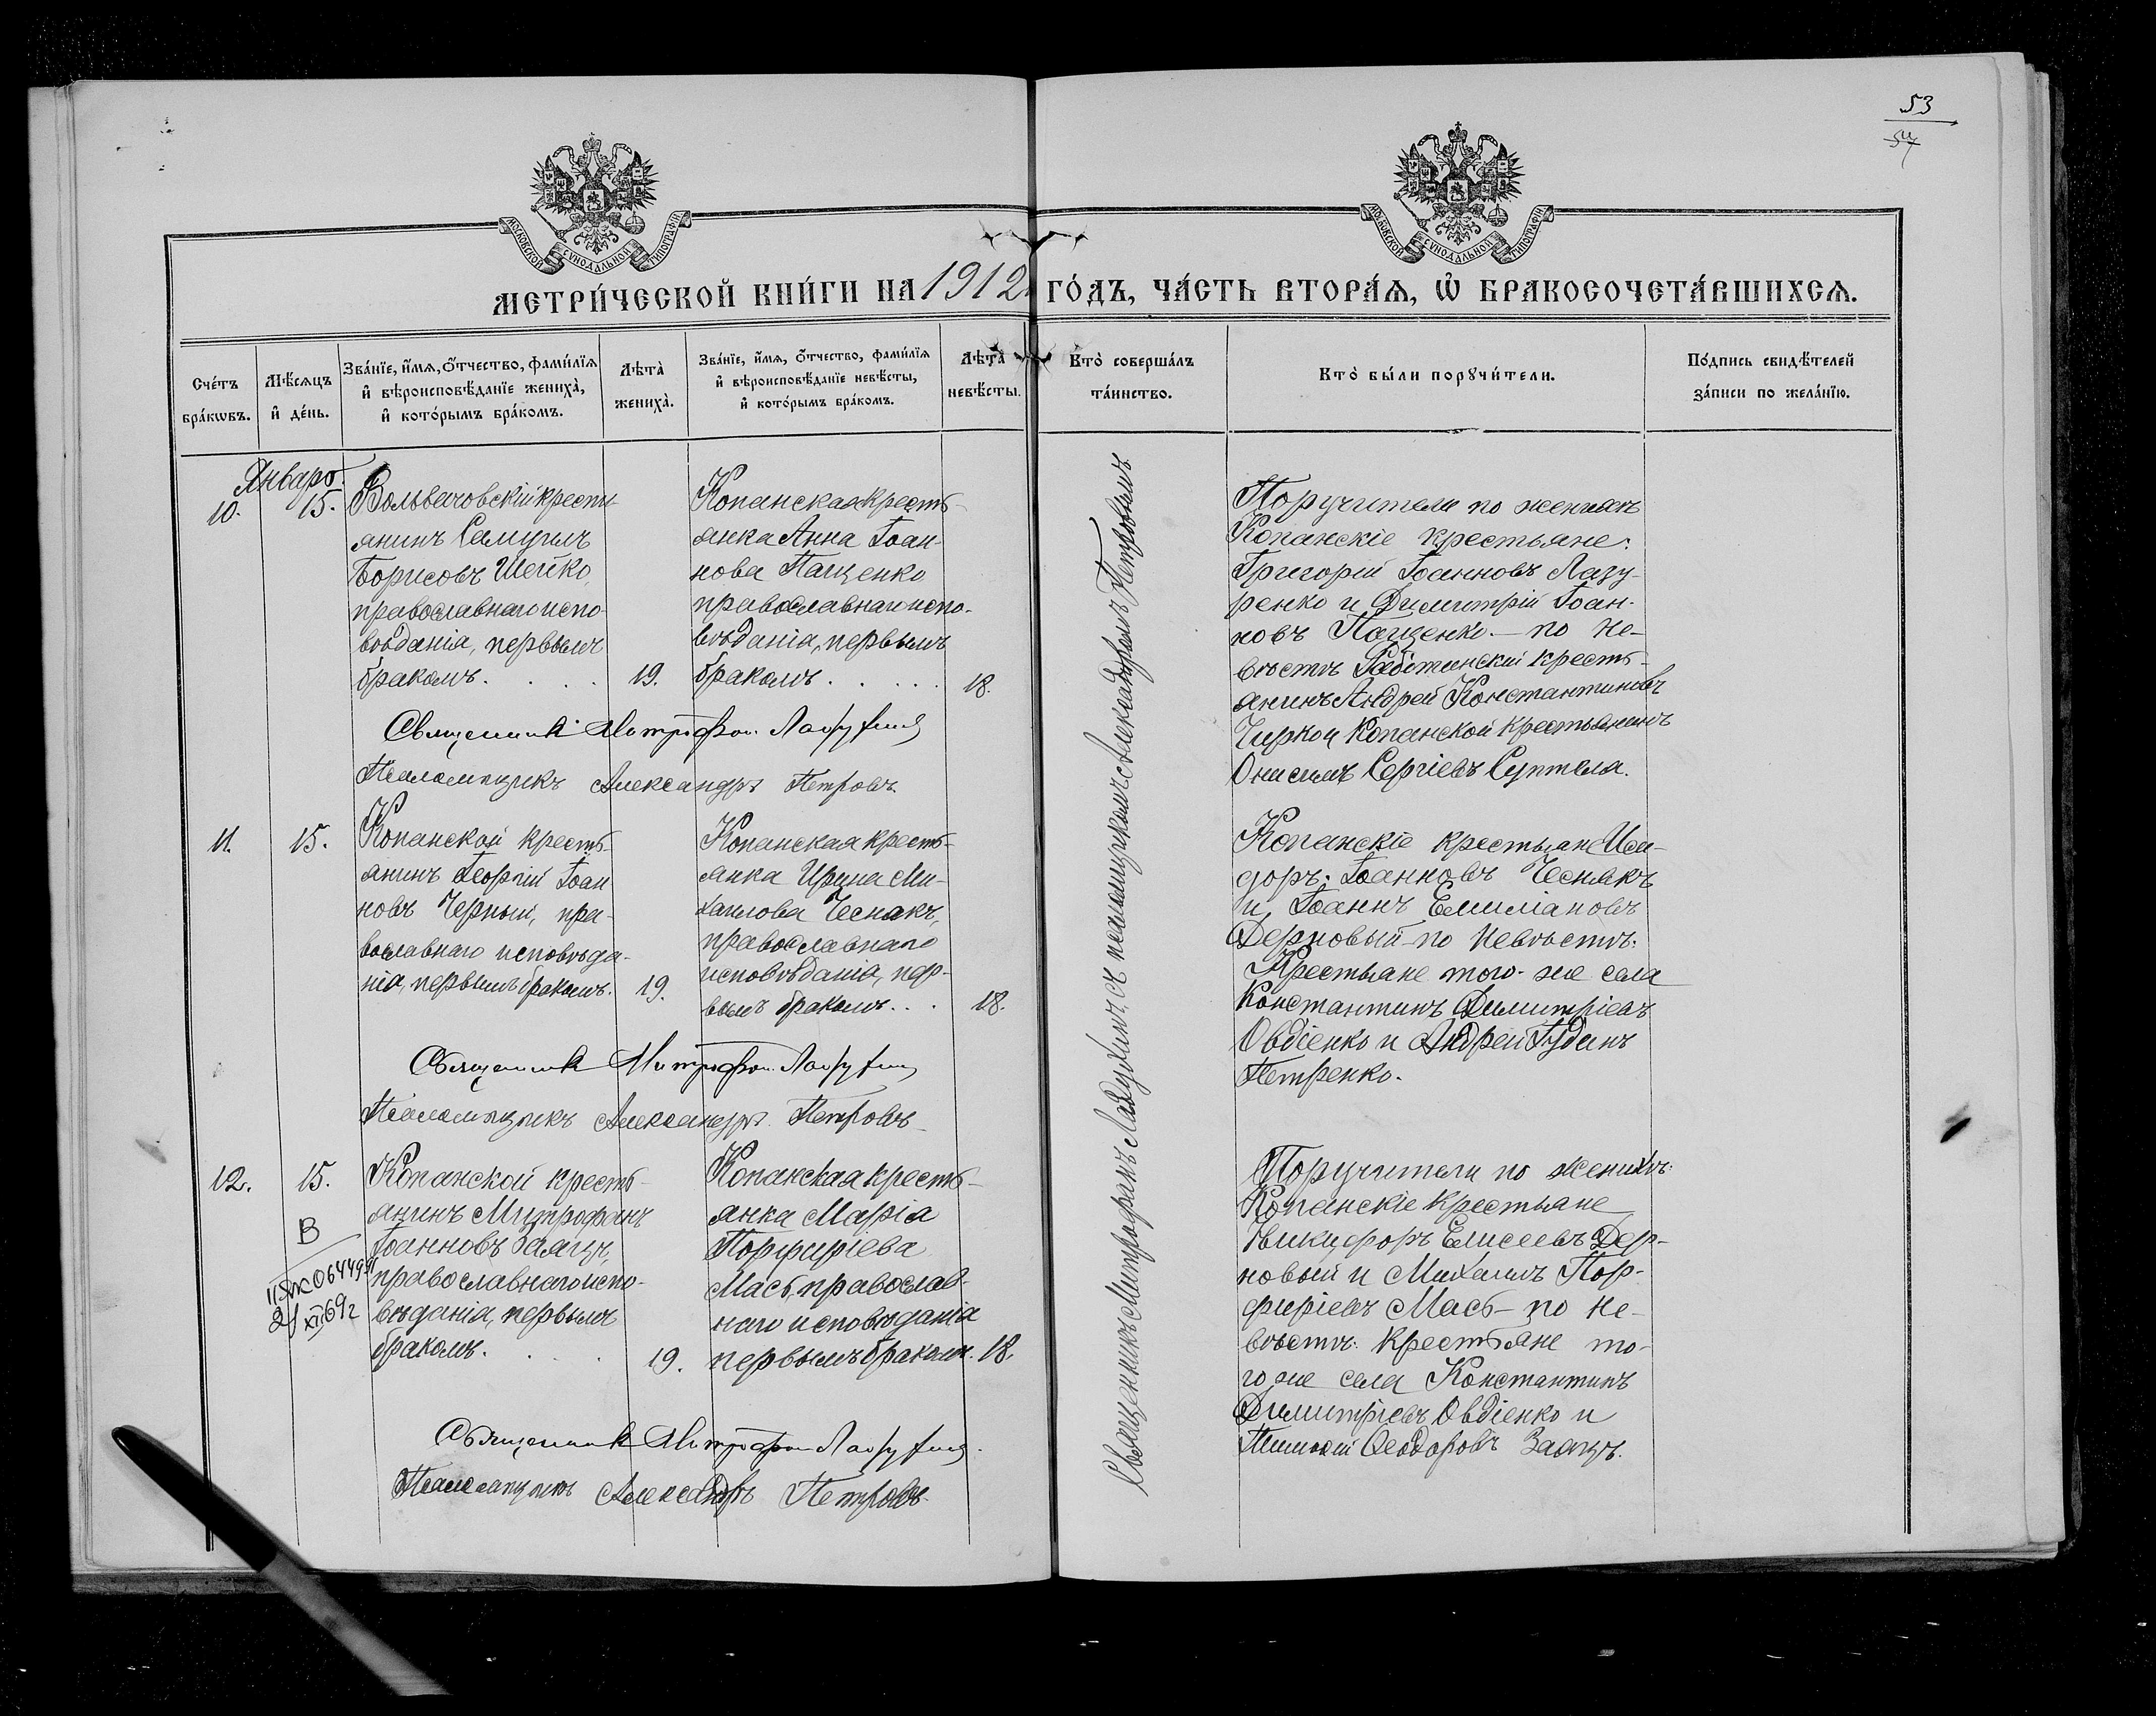 53
57
МОСКОВСКОЙ СѴНОДАЛЬНОЙ ТИПОГРАФІИ
МОСКОВСКОЙ СѴНОДАЛЬНОЙ ТИПОГРАФІИ
МЕТРИ́ЧЕСКОЙ КНИ́ГИ НА 1912 ГО́ДЪ, ЧА́СТЬ ВТОРА́Ѧ, Ѡ҆ БРАКОСОЧЕТА́ВШИХСѦ.
Сче́тъ бра́кѡвъ.
Мѣ́сѧцъ и҆ де́нь.
Зва́нїе, и҆́мѧ, ѻ҆́тчество, фами́лїѧ и҆ вѣроисповѣ́данїе жениха̀, и҆ кото́рымъ бра́комъ.
Лѣ́та̀ жениха̀.
Зва́нїе, и҆́мѧ, ѻ҆́тчество, фами́лїѧ и҆ вѣроисповѣ́данїе невѣ́сты, и҆ кото́рымъ бра́комъ.
Лѣ́та̀ невѣ́сты.
Кто̀ соверша́лъ та́инство.
Кто̀ бы́ли порꙋчи́тели.
По́дпись свидѣ́телей за́писи по жела́нїю.
Январь
10.
15.
крестьянинъ
Самуилъ
Борисовъ Шейко,
православнаго испо-
вѣданія, первымъ
бракомъ.
19.
Копанская кресть-
янка Анна Іоан-
нова Пащенко
православнаго испо-
вѣданія, первымъ
бракомъ.
18.
Поручители по женихѣ
Копанскіе крестьяне:
Григорій Іоанновъ Лазу-
ренко и Димитрій Іоан-
новъ Пащенко – по не-
вѣстѣ кресть-
янинъ Андрей Константиновъ
Копанской крестьянинъ
Онисимъ Сергіевъ
Священникъ Митрофанъ
Псаломщикъ Александръ Петровъ
11.
15.
Копанской кресть-
янинъ Георгій Іоан
новъ Черный, пра-
вославнаго исповѣда-
нія, первымъ бракомъ.
19.
Копанская кресть-
янка Ирина Ми-
хаилова Чеснакъ,
православнаго
исповѣданія, пер-
вымъ бракомъ.
18.
Копанскіе крестьяне Иси-
доръ Іоанновъ Чеснакъ
и Іоаннъ Емиліановъ
Дерновый – по невѣстѣ:
Крестьяне того-же села
Константинъ Димитріевъ
Овдіенко и Андрей
Петренко.
Священникъ Митрофанъ
Псаломщикъ Александръ Петровъ
12.
15.
В
069г
Копанской кресть-
янинъ Митрофанъ
Іоанновъ Заяцъ,
православнаго испо-
вѣданія, первымъ
бракомъ.
19.
Копанская кресть-
янка Марія
Порфиріева
Мась, православ-
наго исповѣданія
первымъ бракомъ.
18.
Поручители по женихѣ:
Копанскіе крестьяне
Никифоръ Елисеевъ Дер-
новый и Михаилъ Пор-
фиріевъ Мась – по не-
вѣстѣ: крестьяне то-
го же села Константинъ
Димитріевъ Овдіенко и
Тимофей Ѳеодоровъ Заяцъ.
Священникъ Митрофанъ
Псаломщикъ Александръ Петровъ
Священникъ Митрофанъ съ псаломщикомъ Александромъ Петровымъ